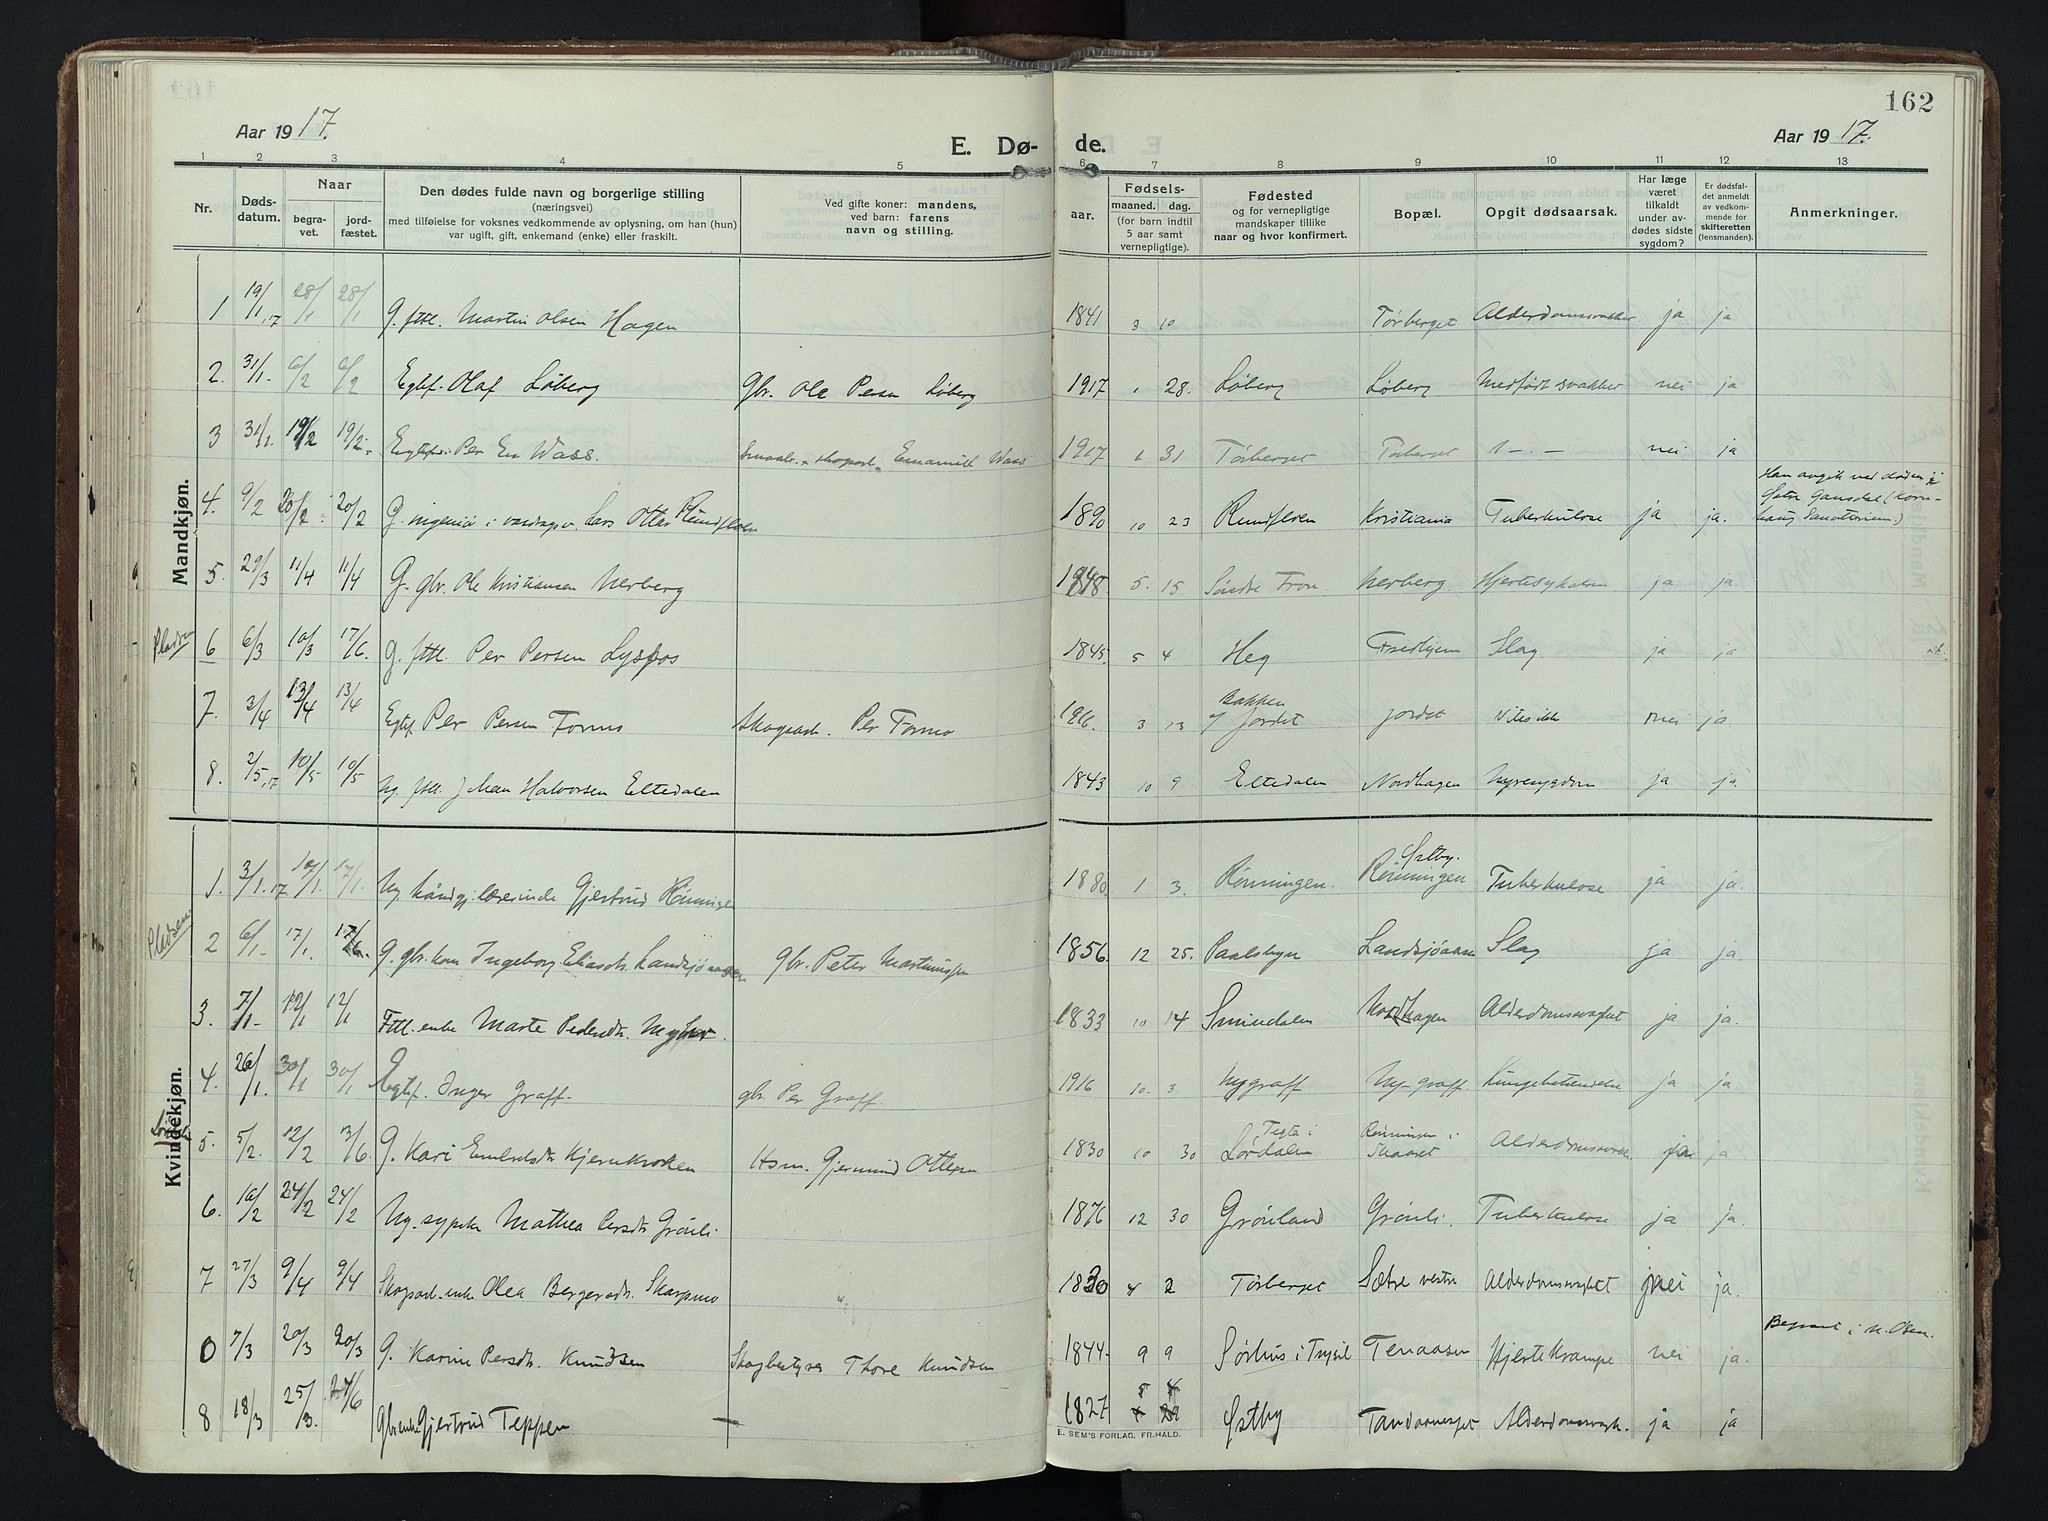 162
Aar 19 17.
E. Dø-
de.
Aar 19 17.
1 2 3 4 5 6 7 8 9 10 11 12 13
Nr.
Døds-
datum.
Naar
begra-
vet.
jord-
fæstet.
Den dødes fulde navn og borgerlige stilling
(næringsvei)
med tilføielse for voksnes vedkommende av oplysning, om han (hun)
var ugift, gift, enkemand (enke) eller fraskilt.
Ved gifte koner: mandens,
ved barn: farens
navn og stilling.
Fødsels-
aar.
maaned. dag.
(for barn indtil
5 aar samt
vernepligtige).
Fødested
og for vernepligtige
mandskaper tillike
naar og hvor konfirmert.
Bopæl.
Opgit dødsaarsak.
Har læge
været
tilkaldt
under av-
dødes sidste
sygdom?
Er dødsfal-
det anmeldt
av vedkom-
mende for
skifteretten
(lensmanden).
Anmerkninger.
Mandkjøn.
1 19/1 17 28/1 28/1 G. fttl. Martin Olsen Hagen 1841 3 10 Tørberget Alderdomssvakket ja ja
2. 31/1. 6/2 6/2 Egtef. Olaf Løberg Gbr. Ole Persen Løberg 1917 1 28. Løberg Løberg Medfødt svakket nei ja
3 31/1. 19/2 19/2 Per Wass. Emanuel Wass 1917 1 31 Tørberget Tørberget — nei ja
4. 9/2 20/2 20/2 G. ingeniør i Lars Otter Rundfloen 1890 10 23 Rundfloen Kristiania Tuberkulose ja ja. Han avgik ved døden
5. 29/3 11/4 11/4 G. gbr. Ole Kristiansen Nerberg 1848. 5. 15 Søndre Fron. Nerberg. Hjertesykdom ja ja
Pladsen 6 6/3 10/3 17/6. G. fttl. Per Persen Lysfos 1845. 5 4 Heg Fredhjem Slag ja ja
7. 3/4 13/4 13/4 Egtef. Per Persen Formo Skogsarb. Per Formo 1916. 3 13 Bakken
Jordet Jordet nei ja.
8. 2/5 17 10/5 10/5 Ug. fttl. Johan Halvorsen Eltedalen 1843 10 9 Eltedalen Nordhagen Nyresygdom ja ja.
Kvindekjøn.
1. 3/1. 17 10/1. 17/1. Ug. håndgj. lærerinde Gjertrud Rønningen 1880 1 3. Rønningen. Østby.
Rønningen Tuberkulose ja ja.
Pladsen 2 6/1. 17/1. 17/6. G. gbr. kon Ingeborg Eliasdt. Landsjøaasen gbr. Peter Martinussen 1856. 12 25. Paalsbyn Landsjøaasen Slag ja ja.
3. 7/1 12/1 12/1 Fttl. enke Marte Pedersdt. 1833 10 14 Smindalen Nordhagen Alderdomssvaghet ja ja.
4. 26/1. 30/1 30/1 Egtef. Inger Graff. gbr. Per Graff. 1916 10. 3 Nygraff Ny-graff. Lungebetændelse ja ja.
5. 5/2. 12/2 13/6 G. Kari Kjernkroken Hsm. Gjermund Ottesen 1830 10 30 Lørdalen Rønningen i Alderdomssvakk. ja ja
6. 16/2 24/2 24/2 Ug. sypike Mathea Persdt. Grønli. 1876 12 30 Grønland Grønli. Tuberkulose ja ja.
7 27/3 9/4 9/4 Skogsarb. enke Olea Bergersdt. Skarpmo 1830 4 2 Tørberget Sætre vestre Alderdomssvaghet nei ja.
0 7/3 20/3 20/3 G. Karine Persdt. Knudsen Skogbestyrer Thore Knudsen 1844 9 9 Sørhus i Trysil Tenaasen Hjertekrampe nei ja. i N. Osen.
8 18/3 25/3. 24/6 Gbr. enke Gjertrud Teppen — 1827 5 4 Østby Tandaaneset Alderdomssvagh. ja ja
E. SEM'S FORLAG, FR.HALD.